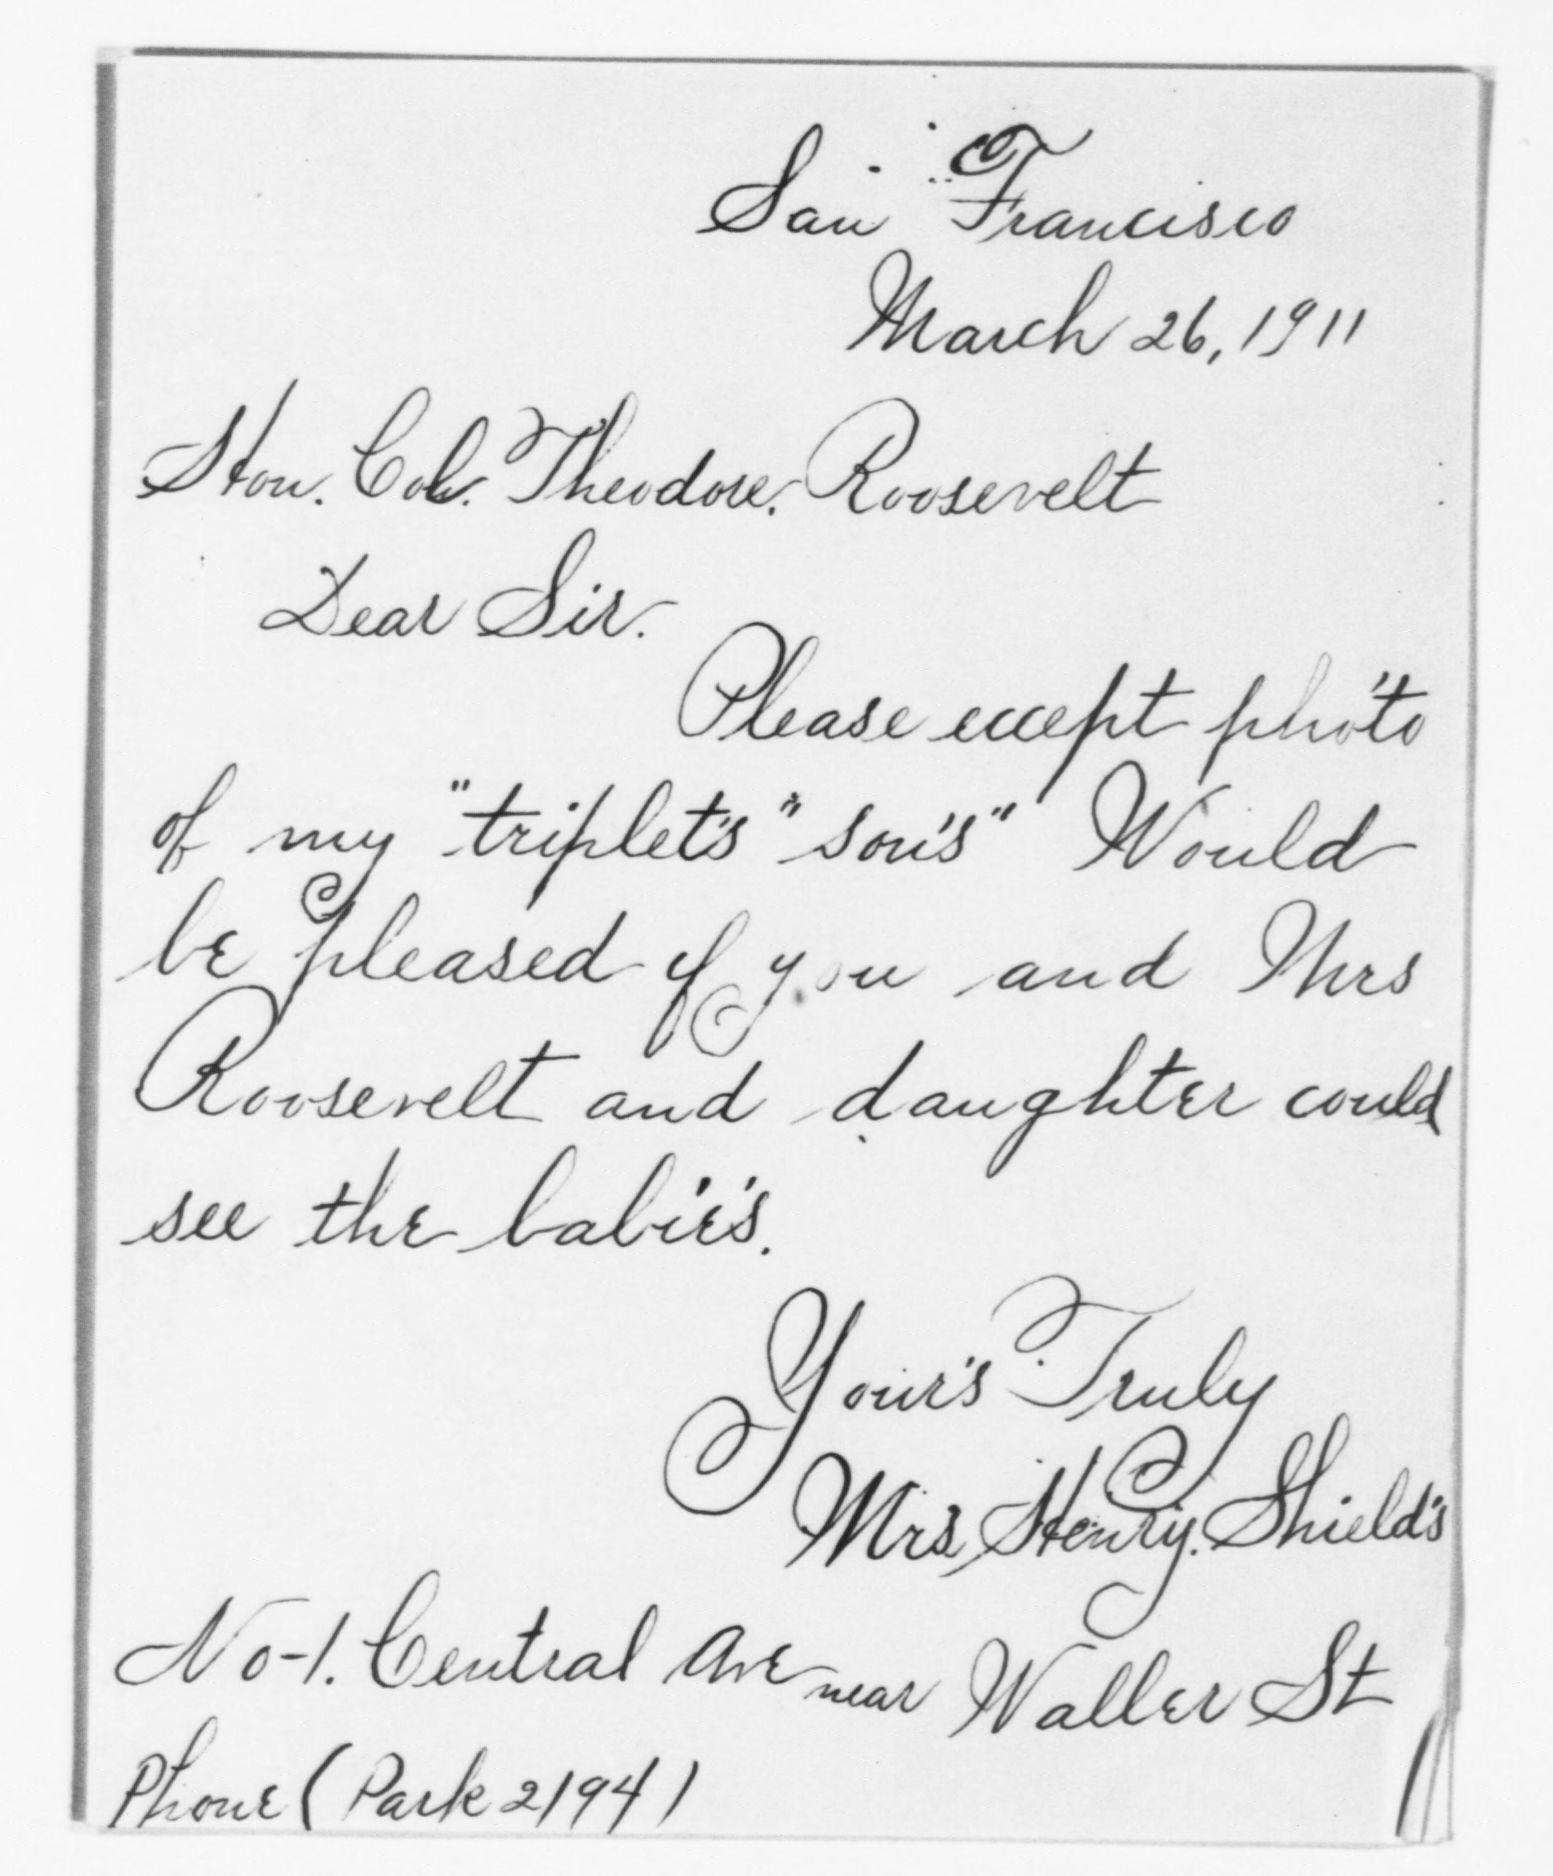 San Francisco
March 26, 1911
Hon. Col. Theodore. Roosevelt
Dear Sir.
Please eccept photo
of my "triplet's" "son's" Would
be pleased if you and Mrs
Roosevelt and daughter could
see the babie's.
Your's Truly
Mrs. Henry. Shield's
No-1. Central Ave near Waller St
Phone (Park 2194)